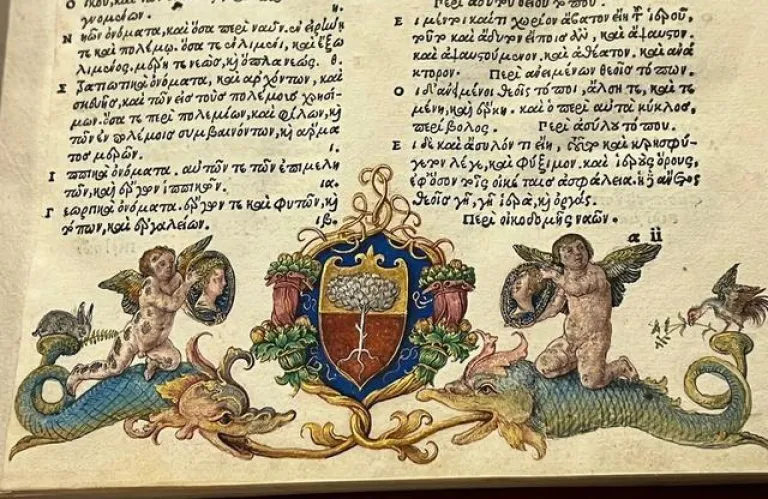 γνομείων. η.
Ν ηῶν ὀνόματα, καὶ ὅσα περὶ ναῦν. ἐν εἰρήνῃ
τε καὶ πολέμῳ. ὅσα τε ἐν λιμένι, καὶ ἔξω
λιμένος. μέρη τε νεὼς, καὶ ὅπλα νεώς. θ.
Σ τρατιωτικὰ ὀνόματα, καὶ ἀρχόντων, καὶ
σκευῆς, καὶ τῶν εἰς τοὺς πολέμους χρησί-
μων. ὅσα τε περὶ πολεμίων, καὶ φίλων, καὶ
τῶν ἐν πολέμοις συμβαινόντων, καὶ ἅρμα
τος μερῶν. ι.
Ι ππικὰ ὀνόματα. αὐτῶν τε τῶν ἐπιμελη
τῶν, καὶ ἔργων ἱππικῶν. ια.
Γ εωργικὰ ὀνόματα. ἔργων τε καὶ φυτῶν, καὶ
τόπων, καὶ ἐργαλείων. ιβ.
Ε ἰ μέντοι καί τι χωρίον ἄβατον εἴη τοῦ ἱεροῦ,
τοῦτο καὶ ἄδυτον εἴποις ἂν, καὶ ἄψαυστον.
καὶ ἀψαυστούμενον. καὶ ἀθέατον. καὶ ἀνά
κτορον. Περὶ ἀνειμένων θεοῖς τόπων.
Ο ἱ δ' ἀνειμένοι θεοῖς τόποι, ἄλση τε, καὶ τε
μένη, καὶ ἕρκη. καὶ ὁ περὶ αὐτὰ κύκλος,
περίβολος. Περὶ ἀσύλου τόπου.
Ε ἰ δὲ καὶ ἄσυλόν τι εἴη, τοῦτο καὶ κρησφύ-
γετον λέγε, καὶ φύξιμον. καὶ ἱεροὺς ὅρους,
ἐφ' ὅσον τοῖς οἰκέταις ἀσφάλεια. ἡ δ' ἄνετος
θεοῖς γῆ, γῆ ἱερὰ, καὶ ὀργάς.
Περὶ οἰκοδομῆς ναῶν.
a ii